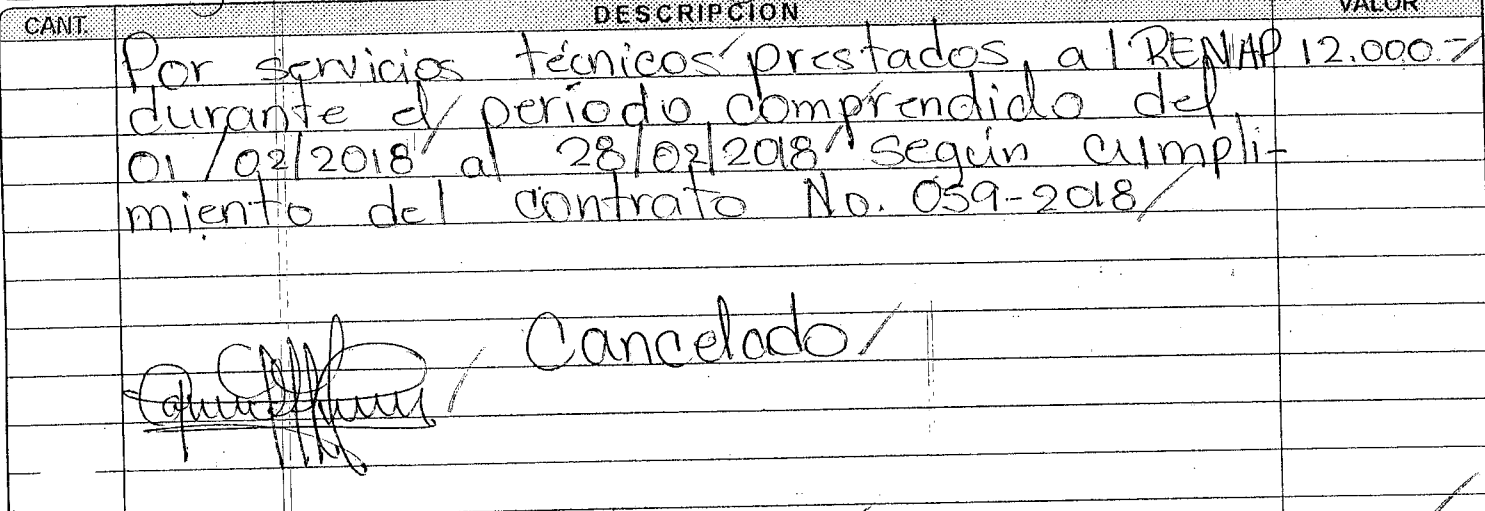 CANT. DESCRIPCION VALOR
Por servicios técnicos prestados al RENAP 12.000.-
durante el período comprendido del
01/02/2018 al 28/02/2018 según cumpli-
miento del contrato No. 059-2018
Cancelado